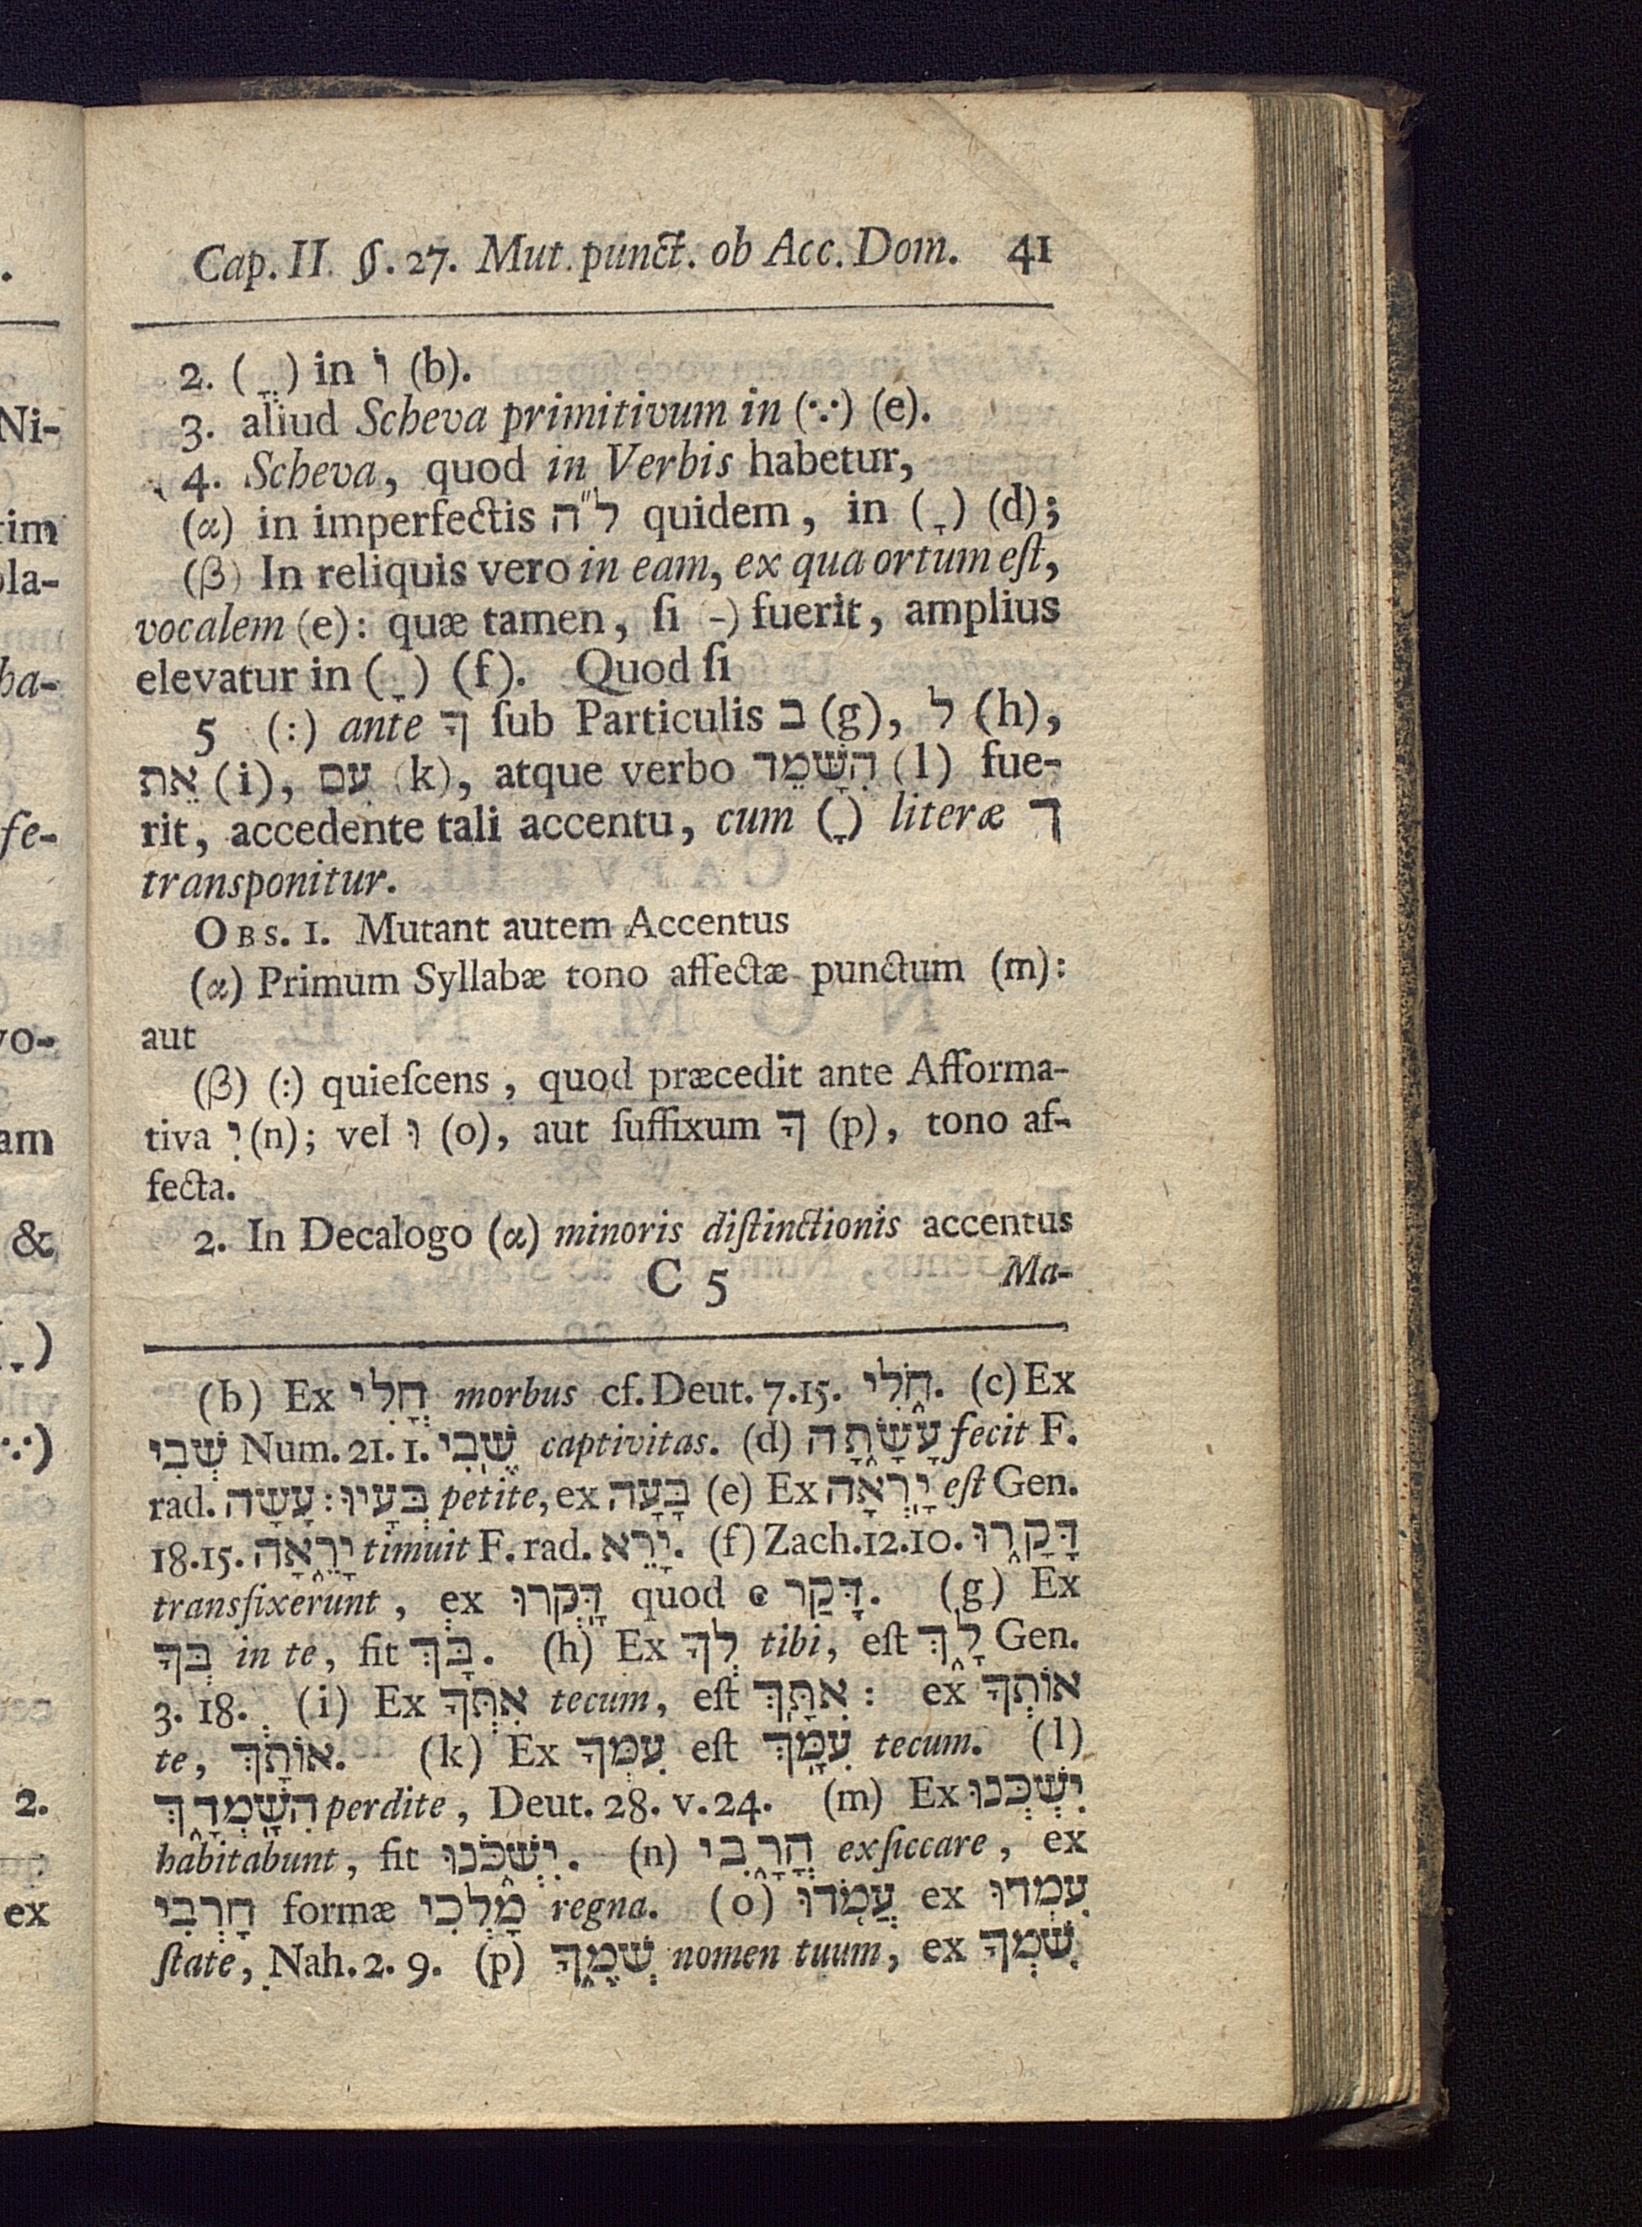 Cap. II. §. 27. Mut. punct. ob Acc. Dom. 41
2. (ֳ) in וֹ (b).
3. aliud Scheva primitivum in (ֶ) (e).
4. Scheva, quod in Verbis habetur,
(α) in imperfectis ל״ה quidem, in (ָ) (d);
(β) In reliquis vero in eam, ex qua ortum eſt,
vocalem (e): quæ tamen, ſi (-) fuerit, amplius
elevatur in (ָ) (f). Quod ſi
5 (:) ante ךָ ſub Particulis ב (g), ל (h),
אֵת (i), עִם (k), atque verbo הִשָּׁמֵד (l) fue-
rit, accedente tali accentu, cum (ָ) literæ ך
transponitur.
OBS. 1. Mutant autem Accentus
(α) Primum Syllabæ tono affectæ punctum (m):
aut
(β) (:) quieſcens, quod præcedit ante Afforma-
tiva יִ (n); vel וּ (o), aut ſuffixum ךָ (p), tono af-
fecta.
2. In Decalogo (α) minoris diſtinctionis accentus
C 5 Ma-
(b) Ex חֳלִי morbus cf. Deut. 7.15. חֹ֑לִי. (c) Ex
שְׁבִי Num. 21. 1. שֶֽׁבִי captivitas. (d) עָשָׂ֑תָה fecit F.
rad. עָשָׂה: בְּעָיוּ petite, ex בָּעָה (e) Ex יָֽרְאָה eſt Gen.
18.15. יָרֵ֑אָה timuit F. rad. יָרֵא. (f) Zach. 12.10. דָּקָ֑רוּ
transfixerunt, ex דָּֽקְרוּ quod e דָּקַר. (g) Ex
בְּךָ in te, fit בָּךְ. (h) Ex לְךָ tibi, eſt לָ֑ךְ Gen.
3. 18. (i) Ex אִתְּךָ tecum, eſt אִתָּֽךְ: ex אוֹתְךָ
te, אוֹתָךְ. (k) Ex עִמְּךָ eſt עִמָּֽךְ tecum. (l)
הִשָּֽׁמְדָ֑ךְ perdite, Deut. 28. v. 24. (m) Ex יִשְׁכְּנוּ
habitabunt, fit יִשְׁכֹּ֑נוּ. (n) הֳרָ֑בִי exſiccare, ex
חָרְבִי formæ מָ֑לְכִי regna. (o) עֲמֹ֑דוּ ex עִמְדוּ
ſtate, Nah. 2. 9. (p) שְׁמֶ֑ךָ nomen tuum, ex שִׁמְךָ